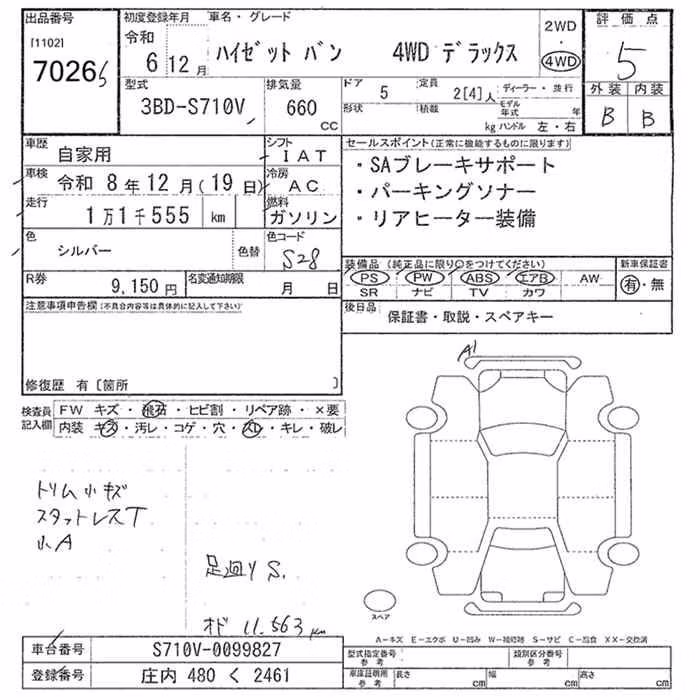 出品番号
[1102]
70265
初度登録年月
令和 6 12 月
車名・グレード
ハイゼット バン 4WD デラックス
2WD
・
4WD
評価点
5
外装 内装
B B
型式
3BD-S710V
排気量
660 CC
ドア 5
定員 2[4]人
ディーラー・並行
形状
積載 kg
モデル年式 年
ハンドル 左・右
車歴
自家用
シフト
IAT
車検 令和 8年12月(19日)
冷房
AC
走行 1万1千555 km
燃料
ガソリン
色 シルバー
色替
色コード
S28
R券 9,150円
名変通知期限 月 日
セールスポイント(正常に機能するものに限ります)
・SAブレーキサポート
・パーキングソナー
・リアヒーター装備
装備品(純正品に限り○をつけてください)
PS PW ABS エアB AW
SR ナビ TV カワ
新車保証書
有・無
後日品
保証書・取説・スペアキー
注意事項申告欄(不具合内容等は具体的に記入して下さい)
修復歴 有〔箇所 〕
検査員記入欄
FW キズ・飛石・ヒビ割・リペア跡・×要
内装 キズ・汚レ・コゲ・穴・スレ・キレ・破レ
トリム小キズ
スタットレスT
小A
足廻りS.
オド 11.563 km
A1
スペア
A-キズ E-エクボ U-凹み W-補修跡 S-サビ C-腐食 XX-交換済
車台番号 S710V-0099827
登録番号 庄内 480 く 2461
型式指定番号 参考
類別区分番号 参考
車庫証明用 参考
長さ cm
幅 cm
高さ cm